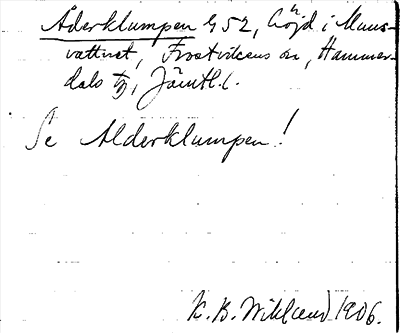 Åderklumpen G 52, höjd i Muns-
vattnet, Frostvikens sn, Hammer-
dals tg, Jämtl. l.
Se Alderklumpen!
K. B. Wiklund 1906.